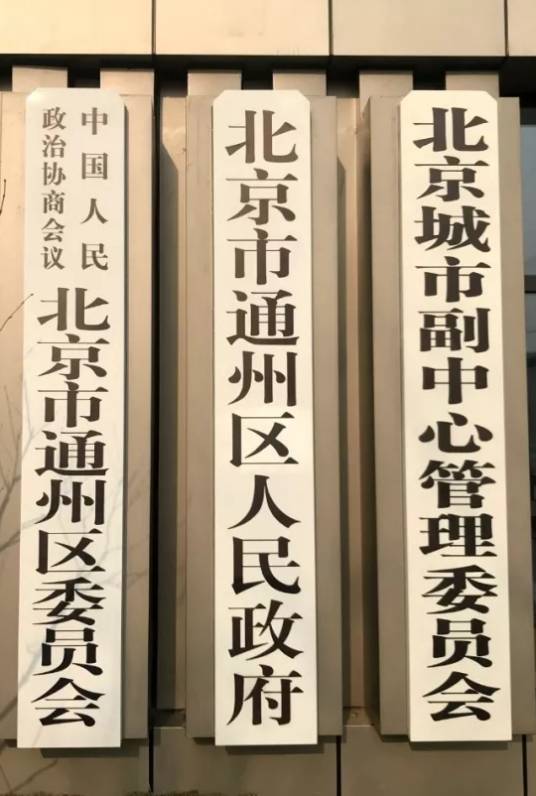 中国人民
政治协商会议
北京市通州区委员会
北京市通州区人民政府
北京城市副中心管理委员会